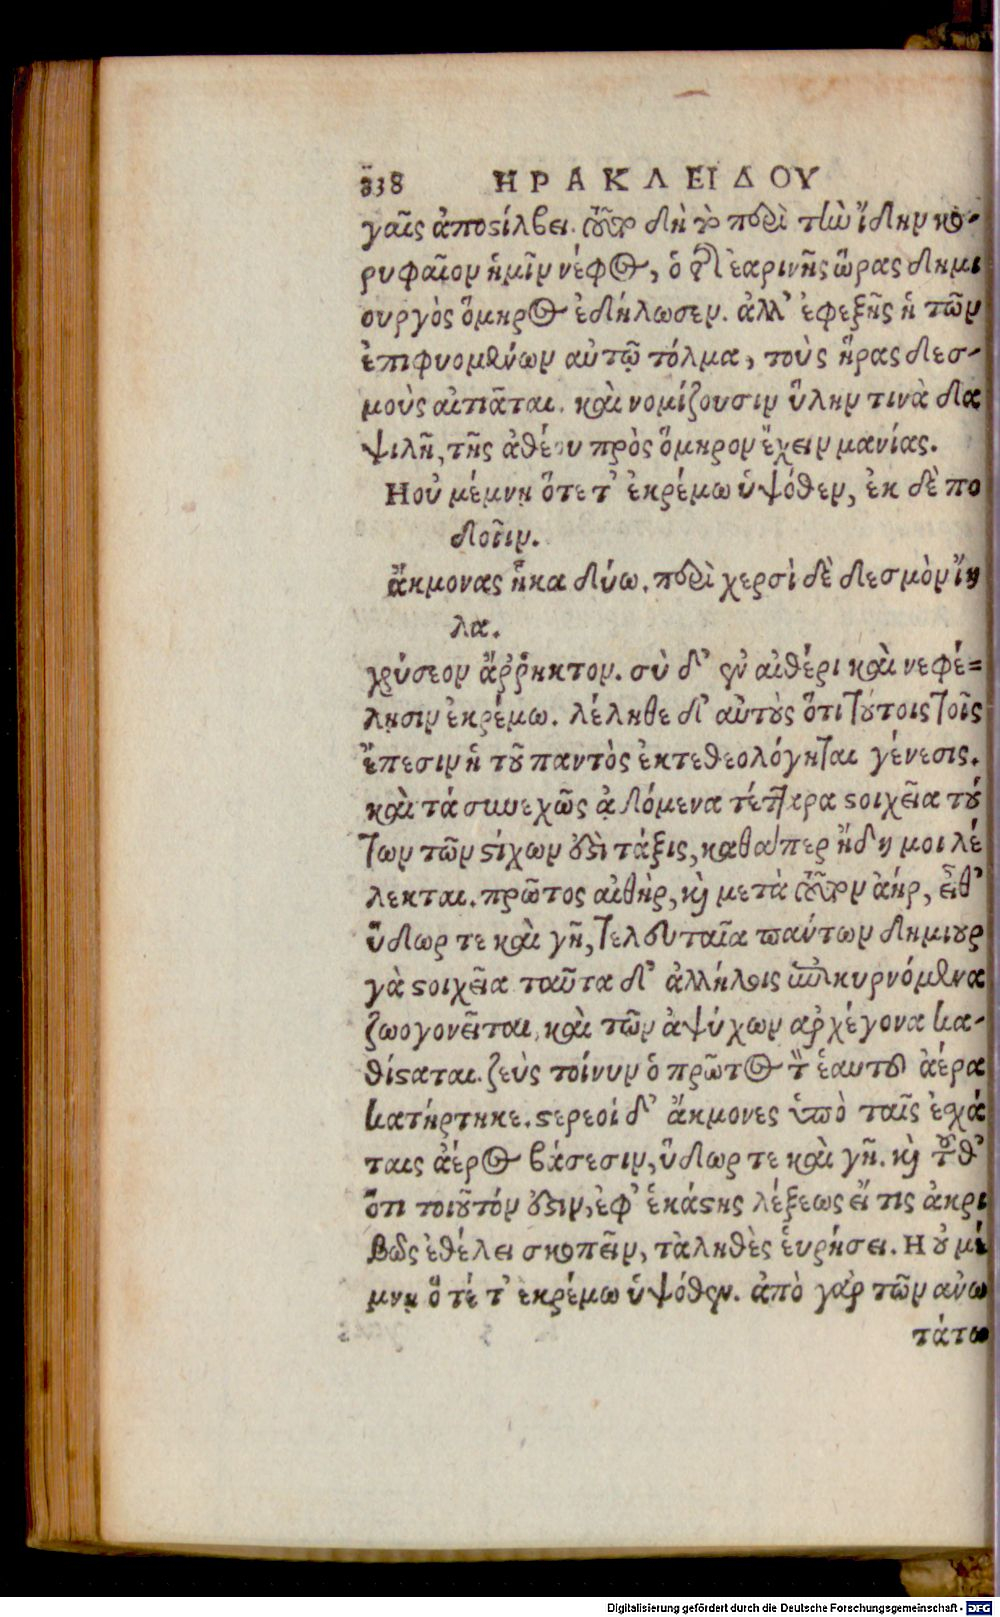 338 ΗΡΑΚΛΕΙΔΟΥ
γαῖς ἀποστίλβει. τοῦτο δὴ τὸ περὶ τὴν ἴδην κο-
ρυφαῖον ἡμῖν νέφος, ὁ τῆς ἐαρινῆς ὥρας δημι
ουργὸς ὅμηρος ἐδήλωσεν. ἀλλ' ἐφεξῆς ἡ τῶν
ἐπιφυομένων αὐτῷ τόλμα, τοὺς ἥρας δεσ-
μοὺς αἰτιᾶται. καὶ νομίζουσιν ὕλην τινὰ δα
ψιλῆ, τῆς ἀθέου πρὸς ὅμηρον ἔχειν μανίας.
Η οὐ μέμνῃ ὅτε τ' ἐκρέμω ὑψόθεν, ἐκ δὲ πο
δοῖιν.
ἄκμονας ἧκα δύω. περὶ χερσὶ δὲ δεσμὸν ἴη
λα.
χρύσεον ἄῤῥηκτον. σὺ δ' ἐν αἰθέρι καὶ νεφέ=
λῃσιν ἐκρέμω. λέληθε δ' αὐτοὺς ὅτι τούτοις τοῖς
ἔπεσιν ἡ τοῦ παντὸς ἐκτεθεολόγηται γένεσις.
καὶ τὰ συνεχῶς ᾀδόμενα τέτταρα στοιχεῖα τού
των τῶν στίχων ἐστὶ τάξις, καθάπερ ἤδη μοι λέ
λεκται. πρῶτος αἰθὴρ, καὶ μετὰ τοῦτον ἀήρ, εἶθ'
ὕδωρ τε καὶ γῆ, τελευταῖα πάντων δημιουρ
γὰ στοιχεῖα ταῦτα δ' ἀλλήλοις ἐπικιρνόμενα
ζωογονεῖται, καὶ τῶν ἀψύχων ἀρχέγονα κα-
θίσταται. ζεὺς τοίνυν ὁ πρῶτος τὸν ἑαυτοῦ ἀέρα
κατήρτηκε. στερεοί δ' ἄκμονες ὑπὸ ταῖς ἐσχά
ταις ἀέρος βάσεσιν, ὕδωρ τε καὶ γῆ. καὶ τοῦθ'
ὅτι τοιοῦτόν ἐστιν, ἐφ' ἑκάστης λέξεως εἴ τις ἀκρι
βῶς ἐθέλει σκοπεῖν, τἀληθὲς εὑρήσει. Η οὐ μέ
μνῃ ὅτέ τ' ἐκρέμω ὑψόθεν. ἀπὸ γὰρ τῶν ἀνω
τάτω
Digitalisierung gefördert durch die Deutsche Forschungsgemeinschaft - DFG